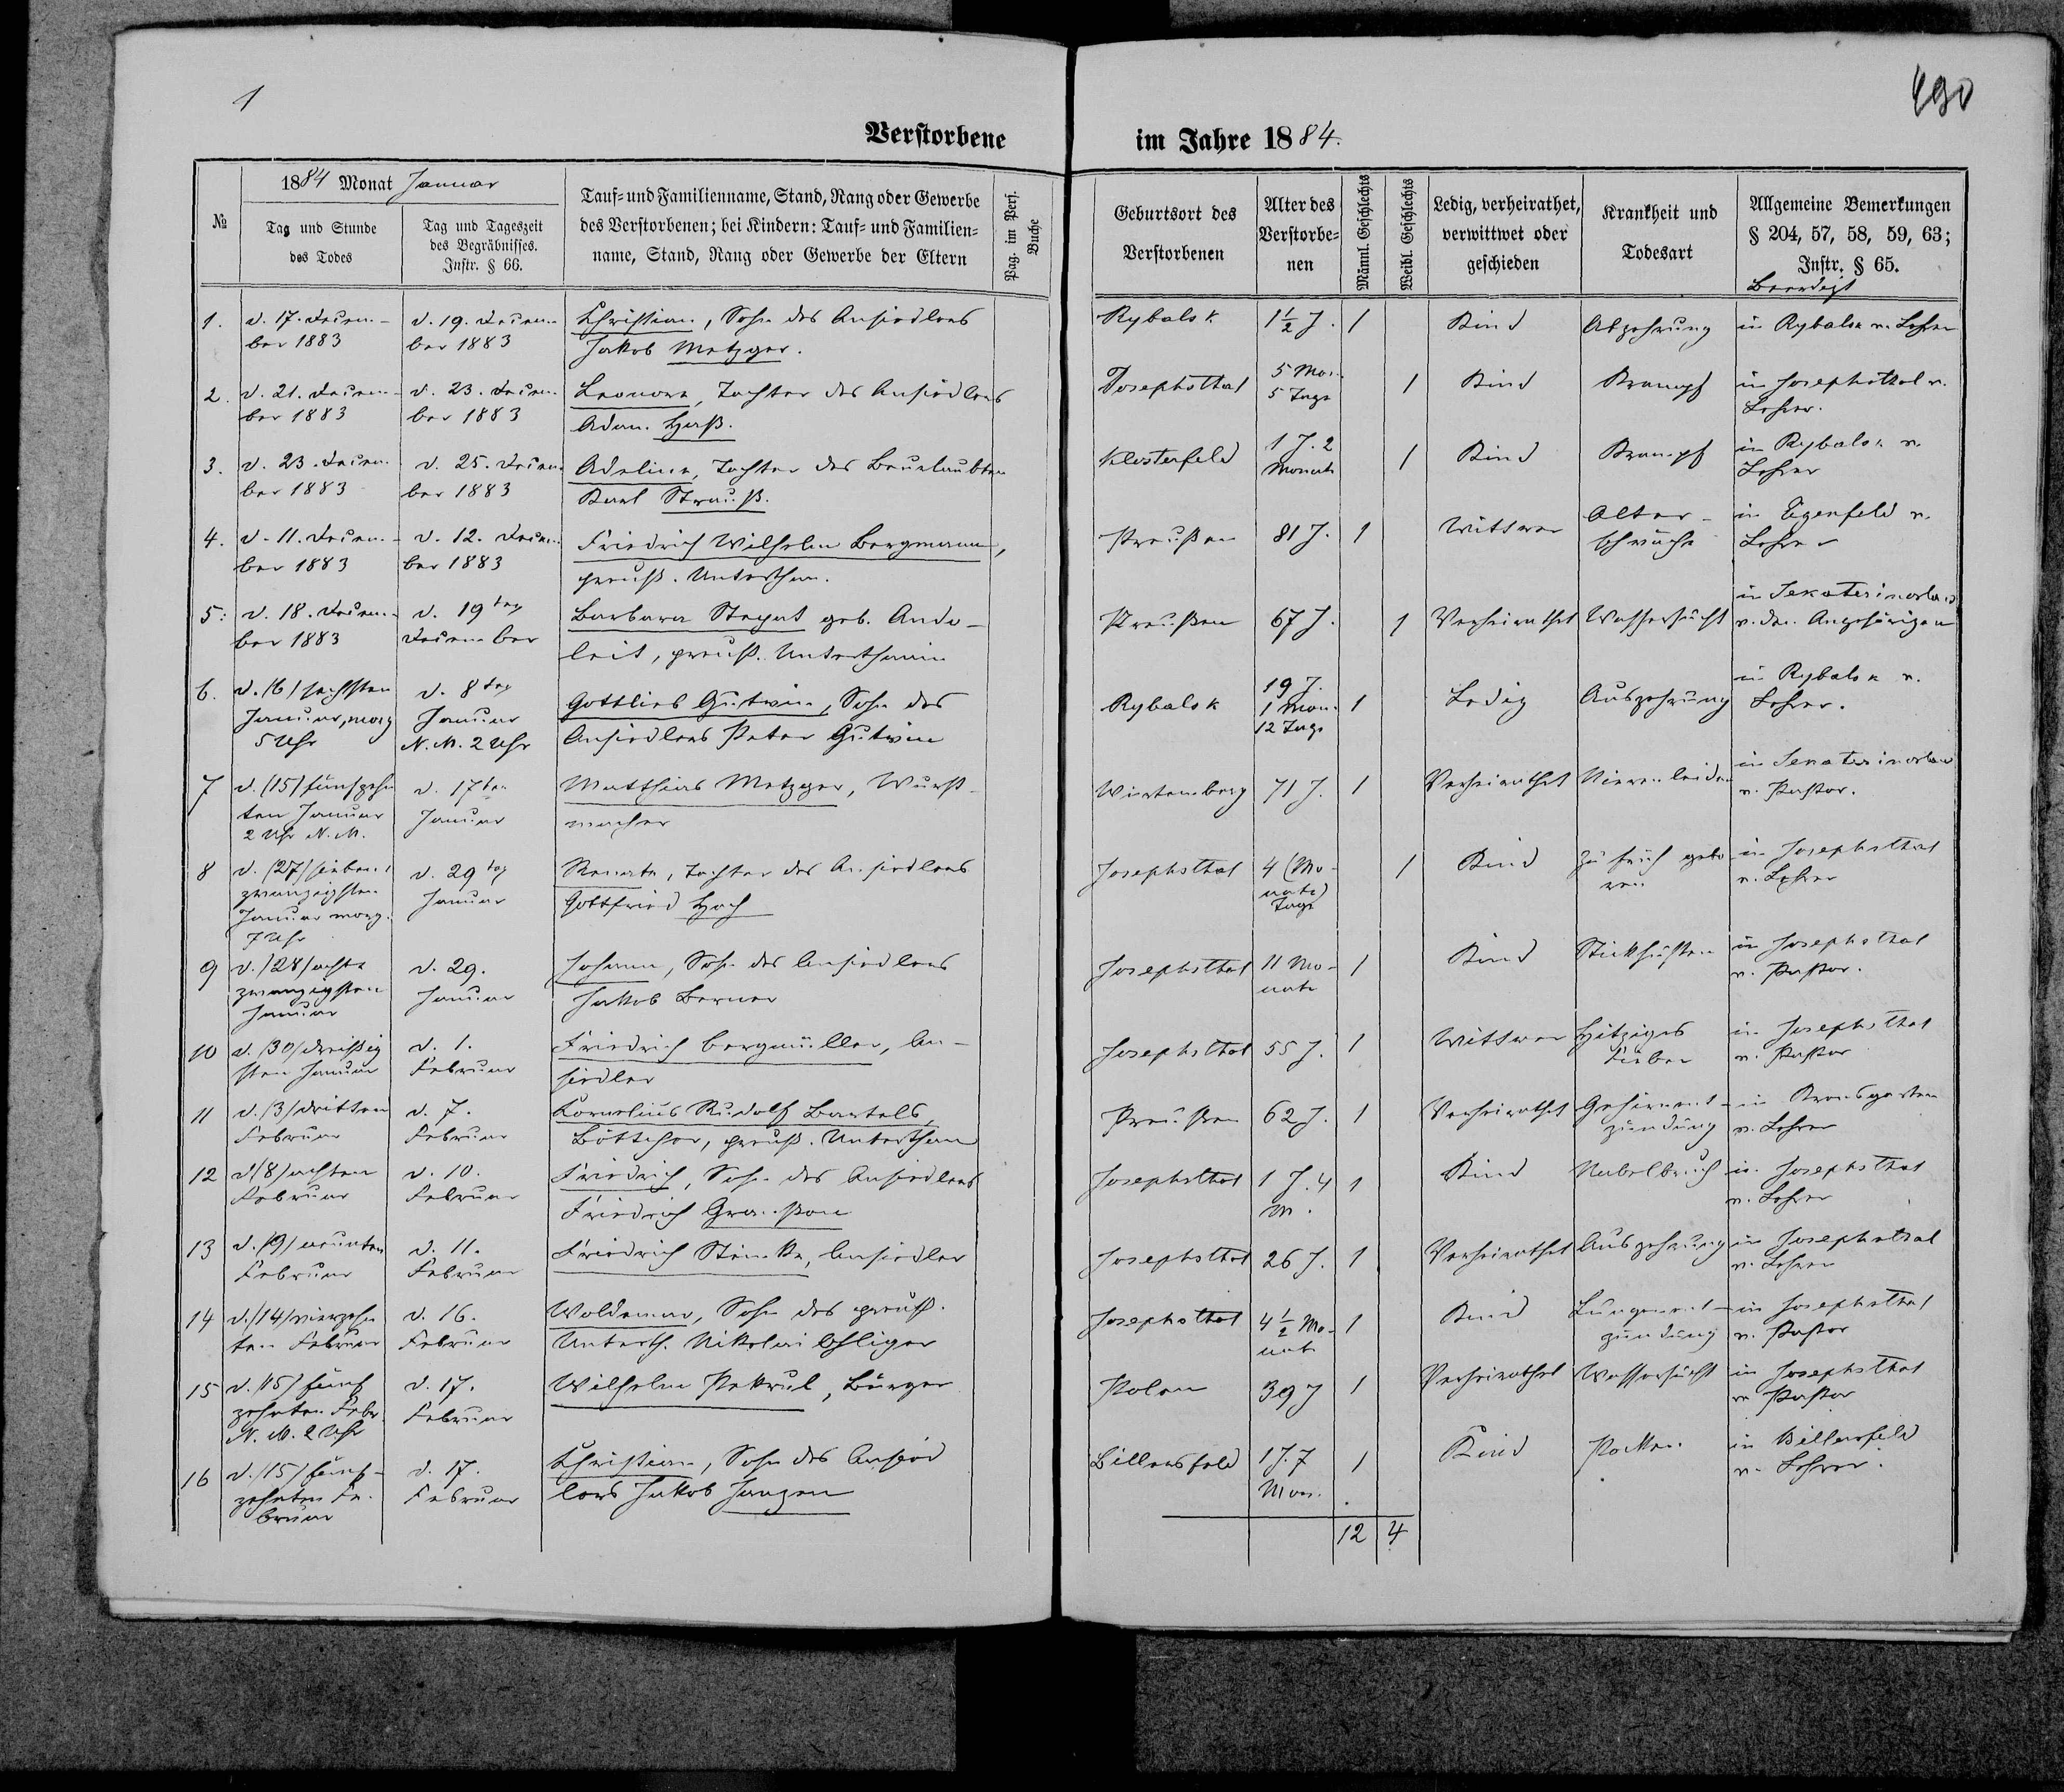 1
490
Verstorbene im Jahre 1884.
№
1884 Monat Januar
Tag und Stunde
des Todes
Tag und Tageszeit
des Begräbnisses.
Instr. § 66.
Tauf- und Familienname, Stand, Rang oder Gewerbe
des Verstorbenen; bei Kindern: Tauf- und Familien-
name, Stand, Rang oder Gewerbe der Eltern
Pag. im Pers.
Buche
Geburtsort des
Verstorbenen
Alter des
Verstorbe-
nen
Männl. Geschlechts
Weibl. Geschlechts
Ledig, verheirathet,
verwittwet oder
geschieden
Krankheit und
Todesart
Allgemeine Bemerkungen
§ 204, 57, 58, 59, 63;
Instr. § 65.
Beerdigt
1. d. 17. Decem- d. 19. Decem- Christian, Sohn des Ansiedlers Rybalsk 1½ J. 1 Kind Abzehrung in Rybalsk v. Lehrer
ber 1883 ber 1883 Jakob Metzger.
2. d. 21. Decem- d. 23. Decem- Leonora, Tochter des Ansiedlers Josephsthal 5 Mon. 1 Kind Krampf in Josephsthal v.
ber 1883 ber 1883 Adam Haß. 5 Tage Lehrer.
3. d. 23. Decem- d. 25. Decem- Adeline, Tochter des Beurlaubten Klosterfeld 1 J. 2 1 Kind Krampf in Rybalsk v.
ber 1883 ber 1883 Karl Strauß. Monate Lehrer
4. d. 11. Decem- d. 12. Decem- Friedrich Wilhelm Bergmann, Preußen 81 J. 1 Wittwer Alter- in Eigenfeld v.
ber 1883 ber 1883 preuß. Unterthan. schwäche Lehrer
5. d. 18. Decem- d. 19 ten Barbara Stepat geb. Ande- Preußen 67 J. 1 Verheirathet Wassersucht in Jekaterinoslaw
ber 1883 December leit, preuß. Unterthanin v. den Angehörigen
6. d. (6) sechsten d. 8 ten Gottlieb Gutwin, Sohn des Rybalsk 19 J. 1 Ledig Auszehrung in Rybalsk v.
Januar, morg Januar Ansiedlers Peter Gutwin 1 Mon. Lehrer.
5 Uhr N. M. 2 Uhr 12 Tage
7 d. (15) fünfzehn d. 17 ten Matthias Metzger, Wurst- Wirtemberg 71 J. 1 Verheirathet Nierenleiden in Jekaterinoslaw
ten Januar Januar macher v. Pastor.
2 Uhr N. M.
8 d. (27) sieben d. 29 ten Renate, Tochter des Ansiedlers Josephsthal 4 (Mo- 1 Kind Zu früh gebo- in Josephsthal
zwanzigsten Januar Gottfried Hoch nate) ren v. Lehrer
Januar morg. Tage
7 Uhr
9 d. (28) acht d. 29. Johann, Sohn des Ansiedlers Josephsthal 11 Mo- 1 Kind Stickhusten in Josephsthal
zwanzigsten Januar Jakob Berner nate v. Pastor.
Januar
10 d. (30) dreißig d. 1. Friedrich Bergmüller, An- Josephsthal 55 J. 1 Wittwer Hitziges in Josephsthal
sten Januar Februar siedler Fieber v. Pastor
11 d. (3) dritten d. 7. Kornelius Rudolf Bartels, Preußen 62 J. 1 Verheirathet Gehirnent- in Kronsgarten
Februar Februar Böttcher, preuß. Unterthan zündung v. Lehrer
12 d (8) achten d. 10. Friedrich, Sohn des Ansiedlers Josephsthal 1 J. 4 1 Kind Nabelbruch in Josephsthal
Februar Februar Friedrich M. v. Lehrer
13 d. (9) neunten d. 11. Friedrich Ansiedler Josephsthal 26 J. 1 Verheirathet Auszehrung in Josephsthal
Februar Februar v. Lehrer
14 d. (14) vierzehn d. 16. Woldemar, Sohn des preuß. Josephsthal 4½ Mo- 1 Kind Lungenent- in Josephsthal
ten Februar Februar Unterth. Nikolai Ohliger nate zündung v. Pastor
15 d. (15) fünf d. 17. Wilhelm Petrul, Bürger Polen 39 J 1 Verheirathet Wassersucht in Josephsthal
zehnten Febr. Februar v. Pastor
N. M. 2 Uhr
16 d. (15) fünf- d. 17. Christian, Sohn des Ansied Billersfeld 1 J. 7 1 Kind Pocken in Billersfeld
zehnten Fe- Februar lers Jakob Janzen Mon. v. Lehrer.
bruar
12 4